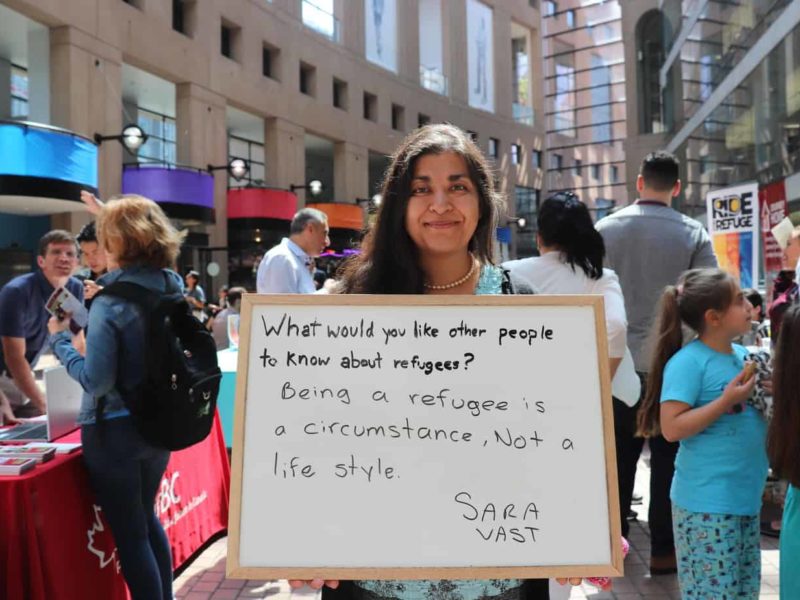 What would you like other people
to know about refugees?
Being a refugee is
a circumstance, Not a
life style.
SARA
VAST
RIDE
REFUGE